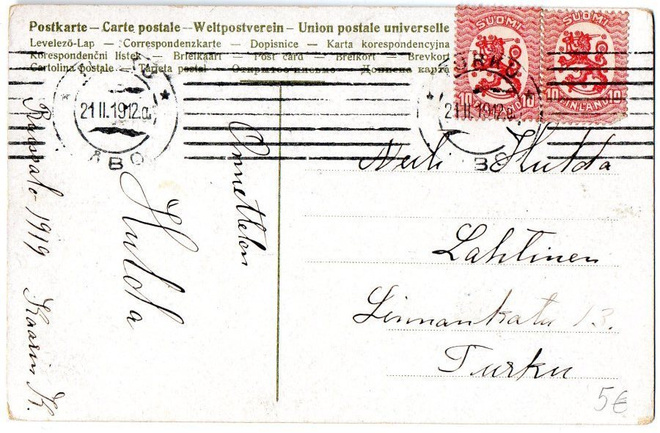 Postkarte — Carte postale — Weltpostverein — Union postale universelle
Levelező-Lap — Correspondenzkarte — Dopisnice — Karta korespondencyjna
Korespondenční lístek — Brefkaart — Post card — Brefkort — Brevkort
Cartolina postale — Tarjeta postal — Открытое письмо — Дописна карта
SUOMI
10 FINLAND 10
SUOMI
10 FINLAND 10
21 II. 19 12.a.
ÅBO
TURKU
21 II. 19 12.a.
Onnetelen
Hulda
1919 Kaarin K.
Neiti Hulda
Lahtinen
Linnankatu 13.
Turku
5€